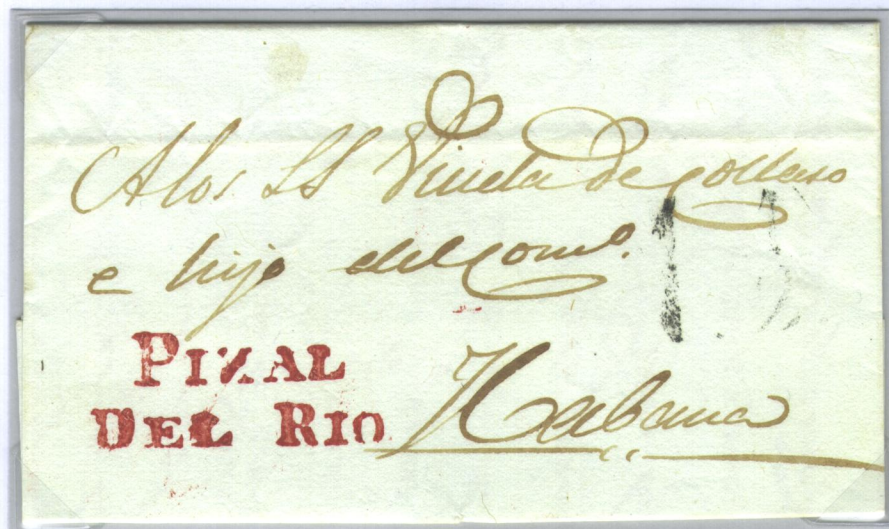 A los SS Viuda de Collaso
e hijo del Como.
PINAL
DEL RIO
Habana